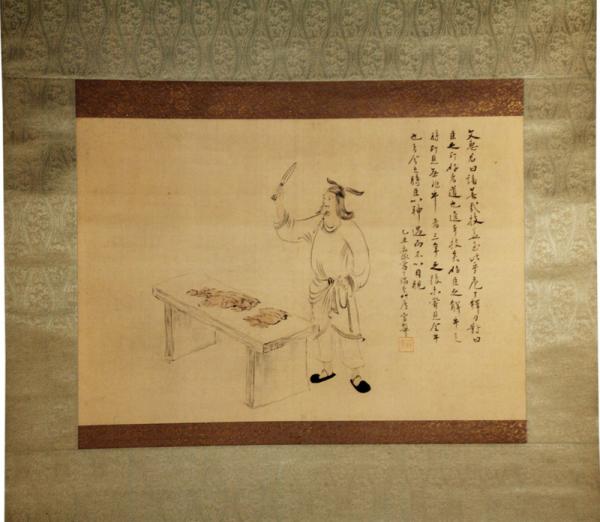 文惠君曰譆善哉技盖至此乎庖丁釋刀對曰
臣之所好者道也進乎技矣始臣之解牛之
時所見無非牛者三年之後未嘗見全牛
也方今之時臣以神遇而不以目視
乙丑